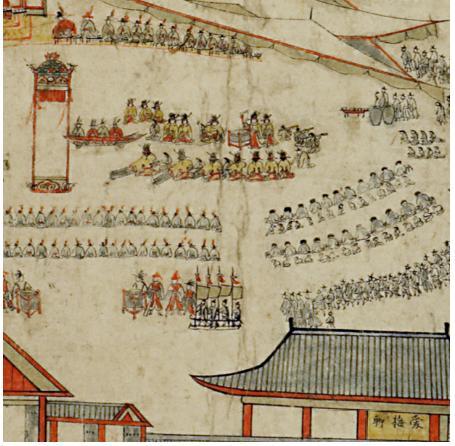 愛梅軒